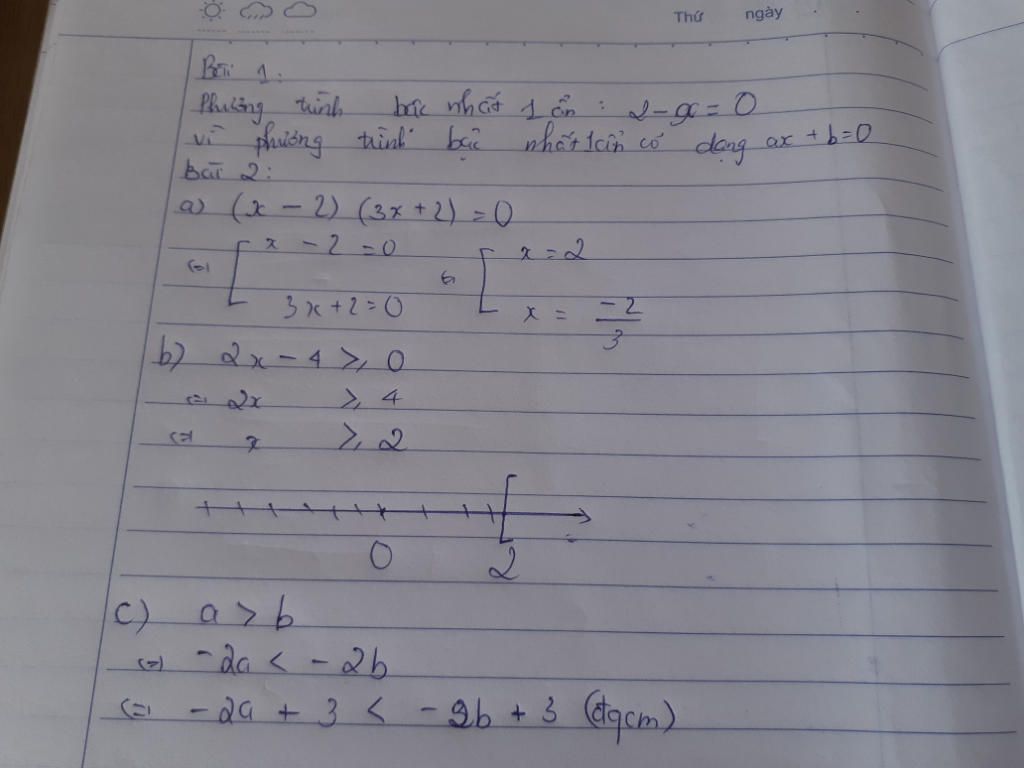 Thứ ngày
Bài 1:
Phương trình bậc nhất 1 ẩn : 2 - x = 0
vì phương trình bậc nhất 1 ẩn có dạng ax + b = 0
Bài 2:
a) (x - 2) (3x + 2) = 0
⇔ [ x - 2 = 0 ⇔ [ x = 2
3x + 2 = 0 x = -2/3
b) 2x - 4 ⩾ 0
⇔ 2x ⩾ 4
⇔ x ⩾ 2
0 2
c) a > b
⇔ -2a < -2b
⇔ -2a + 3 < -2b + 3 (đqcm)